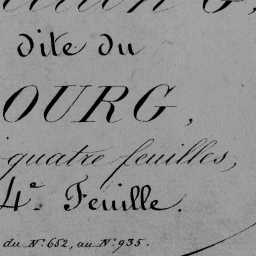 dite du
OURG,
quatre feuilles,
4e. Feuille.
du No. 652, au No. 935.